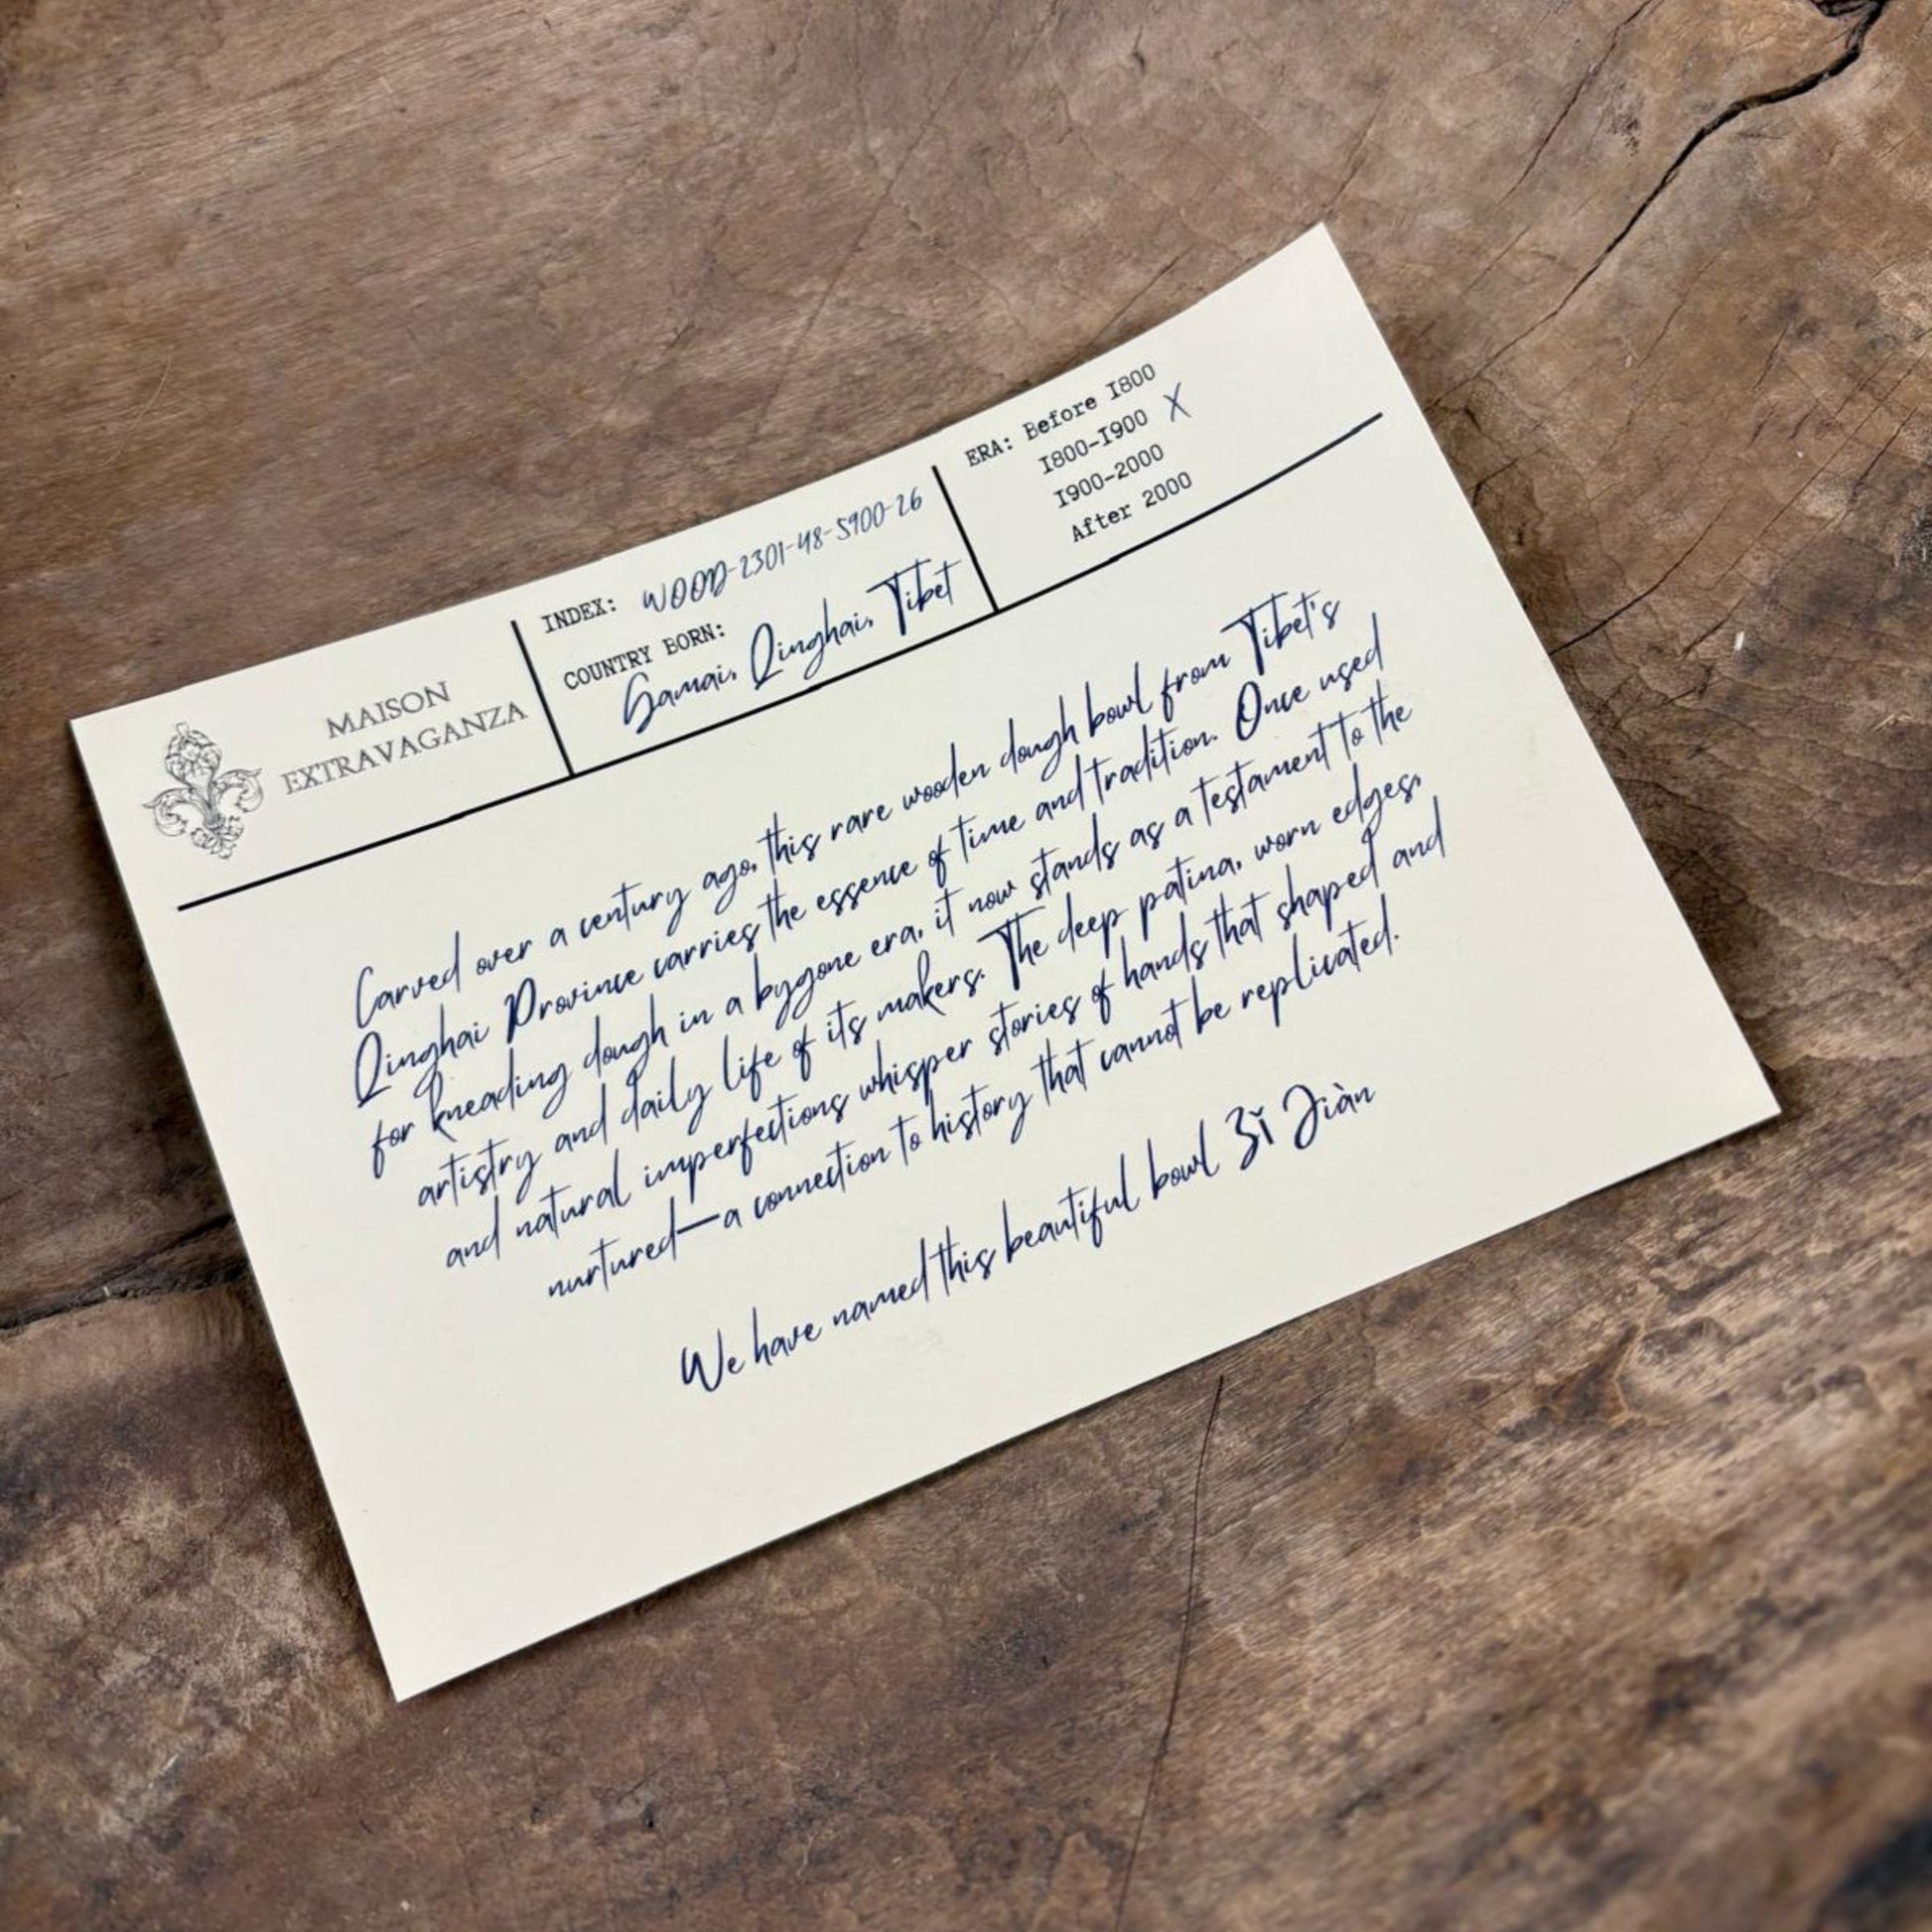 MAISON
EXTRAVAGANZA
INDEX: WOOD-2301-48-S900-26
COUNTRY BORN:
Gamai, Qinghai, Tibet
ERA: Before 1800
1800-1900 X
1900-2000
After 2000
Carved over a century ago, this rare wooden dough bowl from Tibet's
Qinghai Province carries the essence of time and tradition. Once used
for kneading dough in a bygone era, it now stands as a testament to the
artistry and daily life of its makers. The deep patina, worn edges,
and natural imperfections whisper stories of hands that shaped and
nurtured—a connection to history that cannot be replicated.
We have named this beautiful bowl Zǐ Jiàn